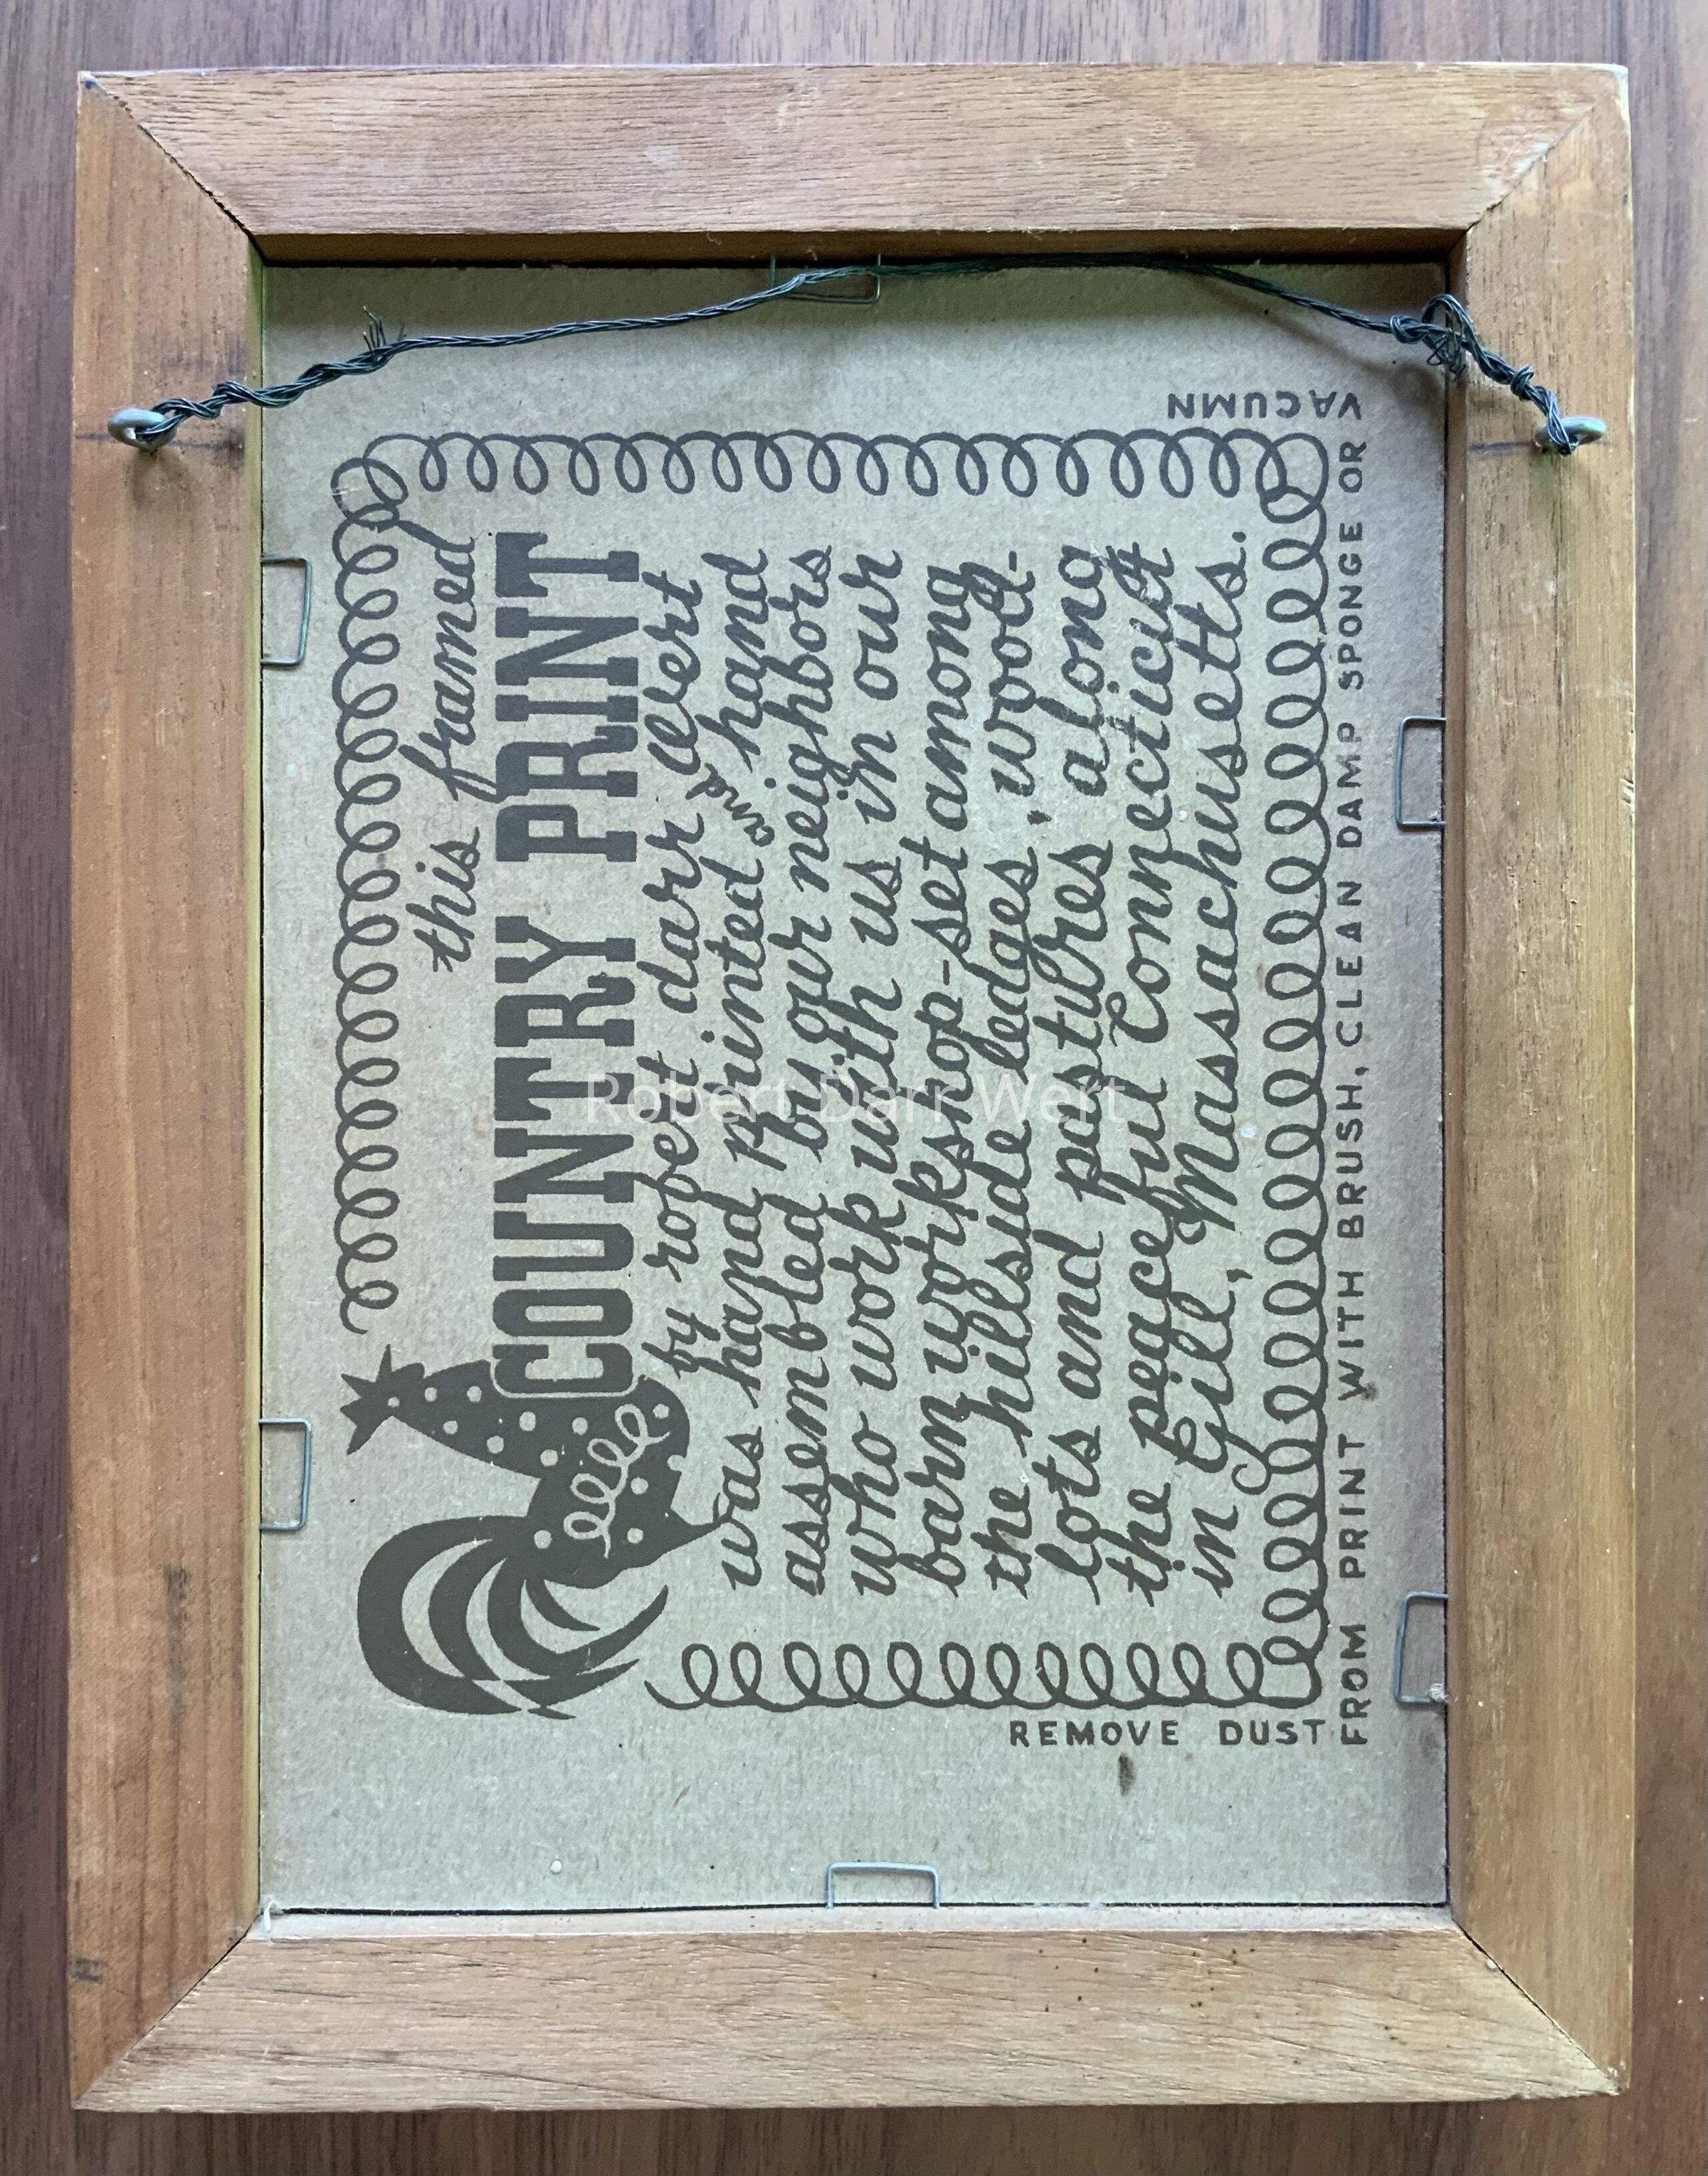 this framed
COUNTRY PRINT
by robert darr wert
was hand printed and hand
assembled by our neighbors
who work with us in our
barn workshop-set among
the hillside ledges, wood-
lots and pastures along
the peaceful Connecticut
in Gill, Massachusetts.
REMOVE DUST
FROM PRINT WITH BRUSH, CLEAN DAMP SPONGE OR
VACUMN
Robert Darr Wert